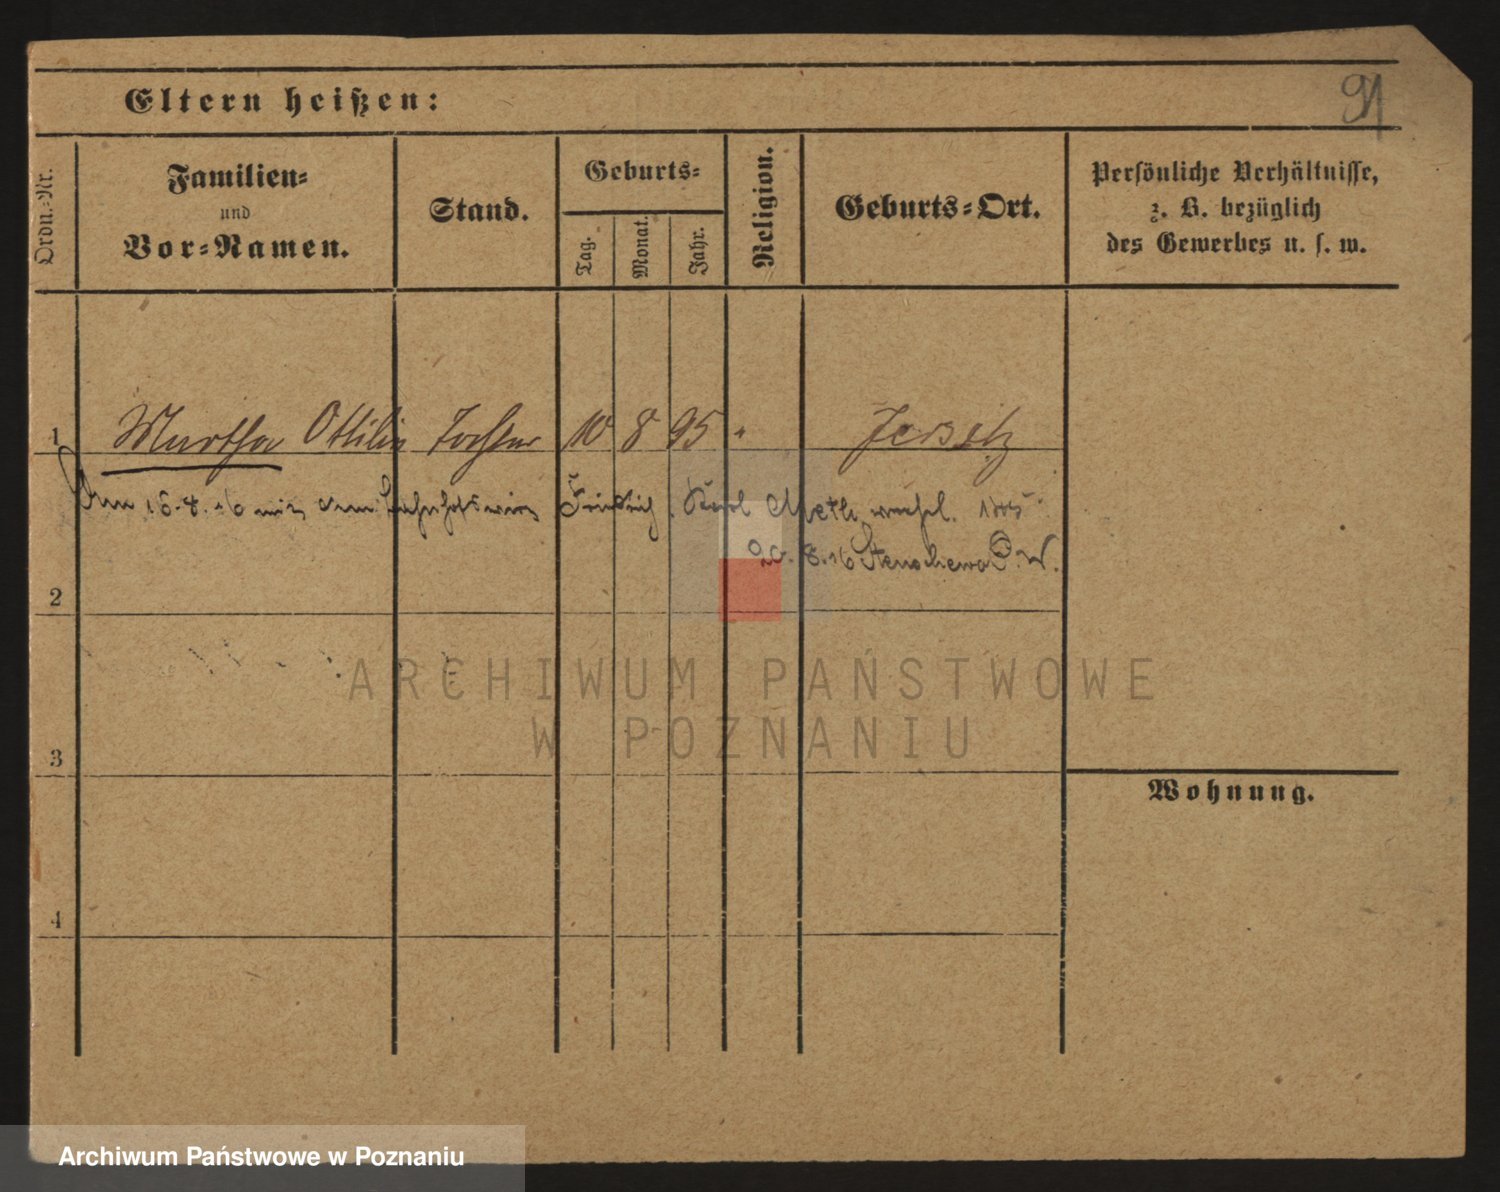 Eltern heißen:
91
Ordn.-Nr.
Familien-
und
Vor-Namen.
Stand.
Geburts-
Tag.
Monat.
Jahr.
Religion.
Geburts-Ort.
Persönliche Verhältnisse,
z. B. bezüglich
des Gewerbes u. s. w.
1 Martha Ottilie Tochter 10 8 95 " Jersitz
Am 15.4.16 mit dem Bahnhofswirt Friedrich Karl verehel.
20.8.16 Stenschewo P. W.
2
ARCHIWUM PAŃSTWOWE
W POZNANIU
3
Wohnung.
4
Archiwum Państwowe w Poznaniu